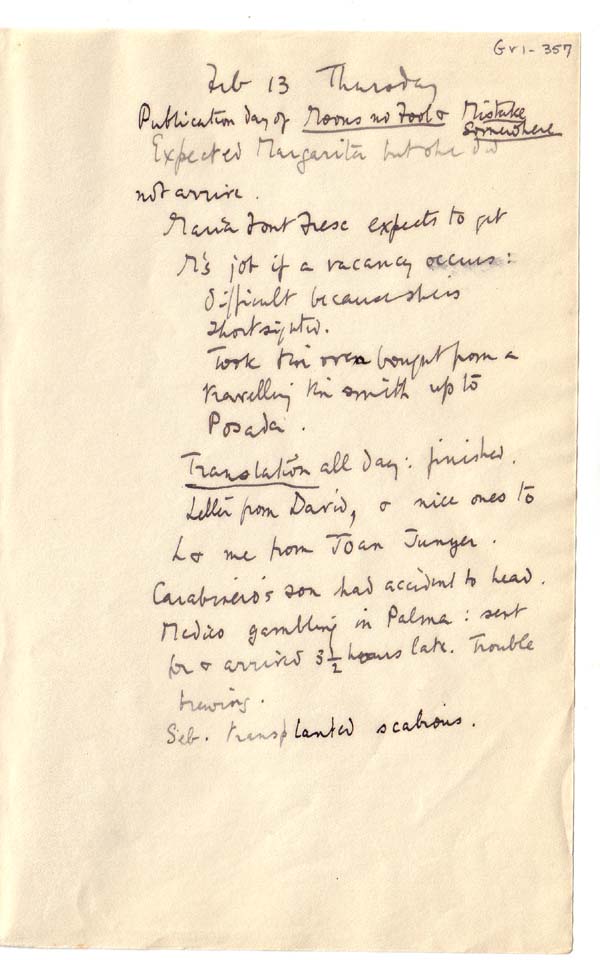 Gr1-357
Feb 13 Thursday
Publication day of Moons no Fool & Mistake
Somewhere
Expected Margarita but she did
not arrive.
Maria Font Fresc expects to get
M's job if a vacancy occurs:
difficult because she is
shortsighted.
Took tin oven bought from a
travelling tin smith up to
Posada.
Translation all day: finished.
Letter from David, & nice ones to
L & me from Joan Junyer.
Carabinero's son had accident to head.
Medico gambling in Palma: sent
for & arrived 3 1/2 hours late. Trouble
brewing.
Seb. transplanted scabious.